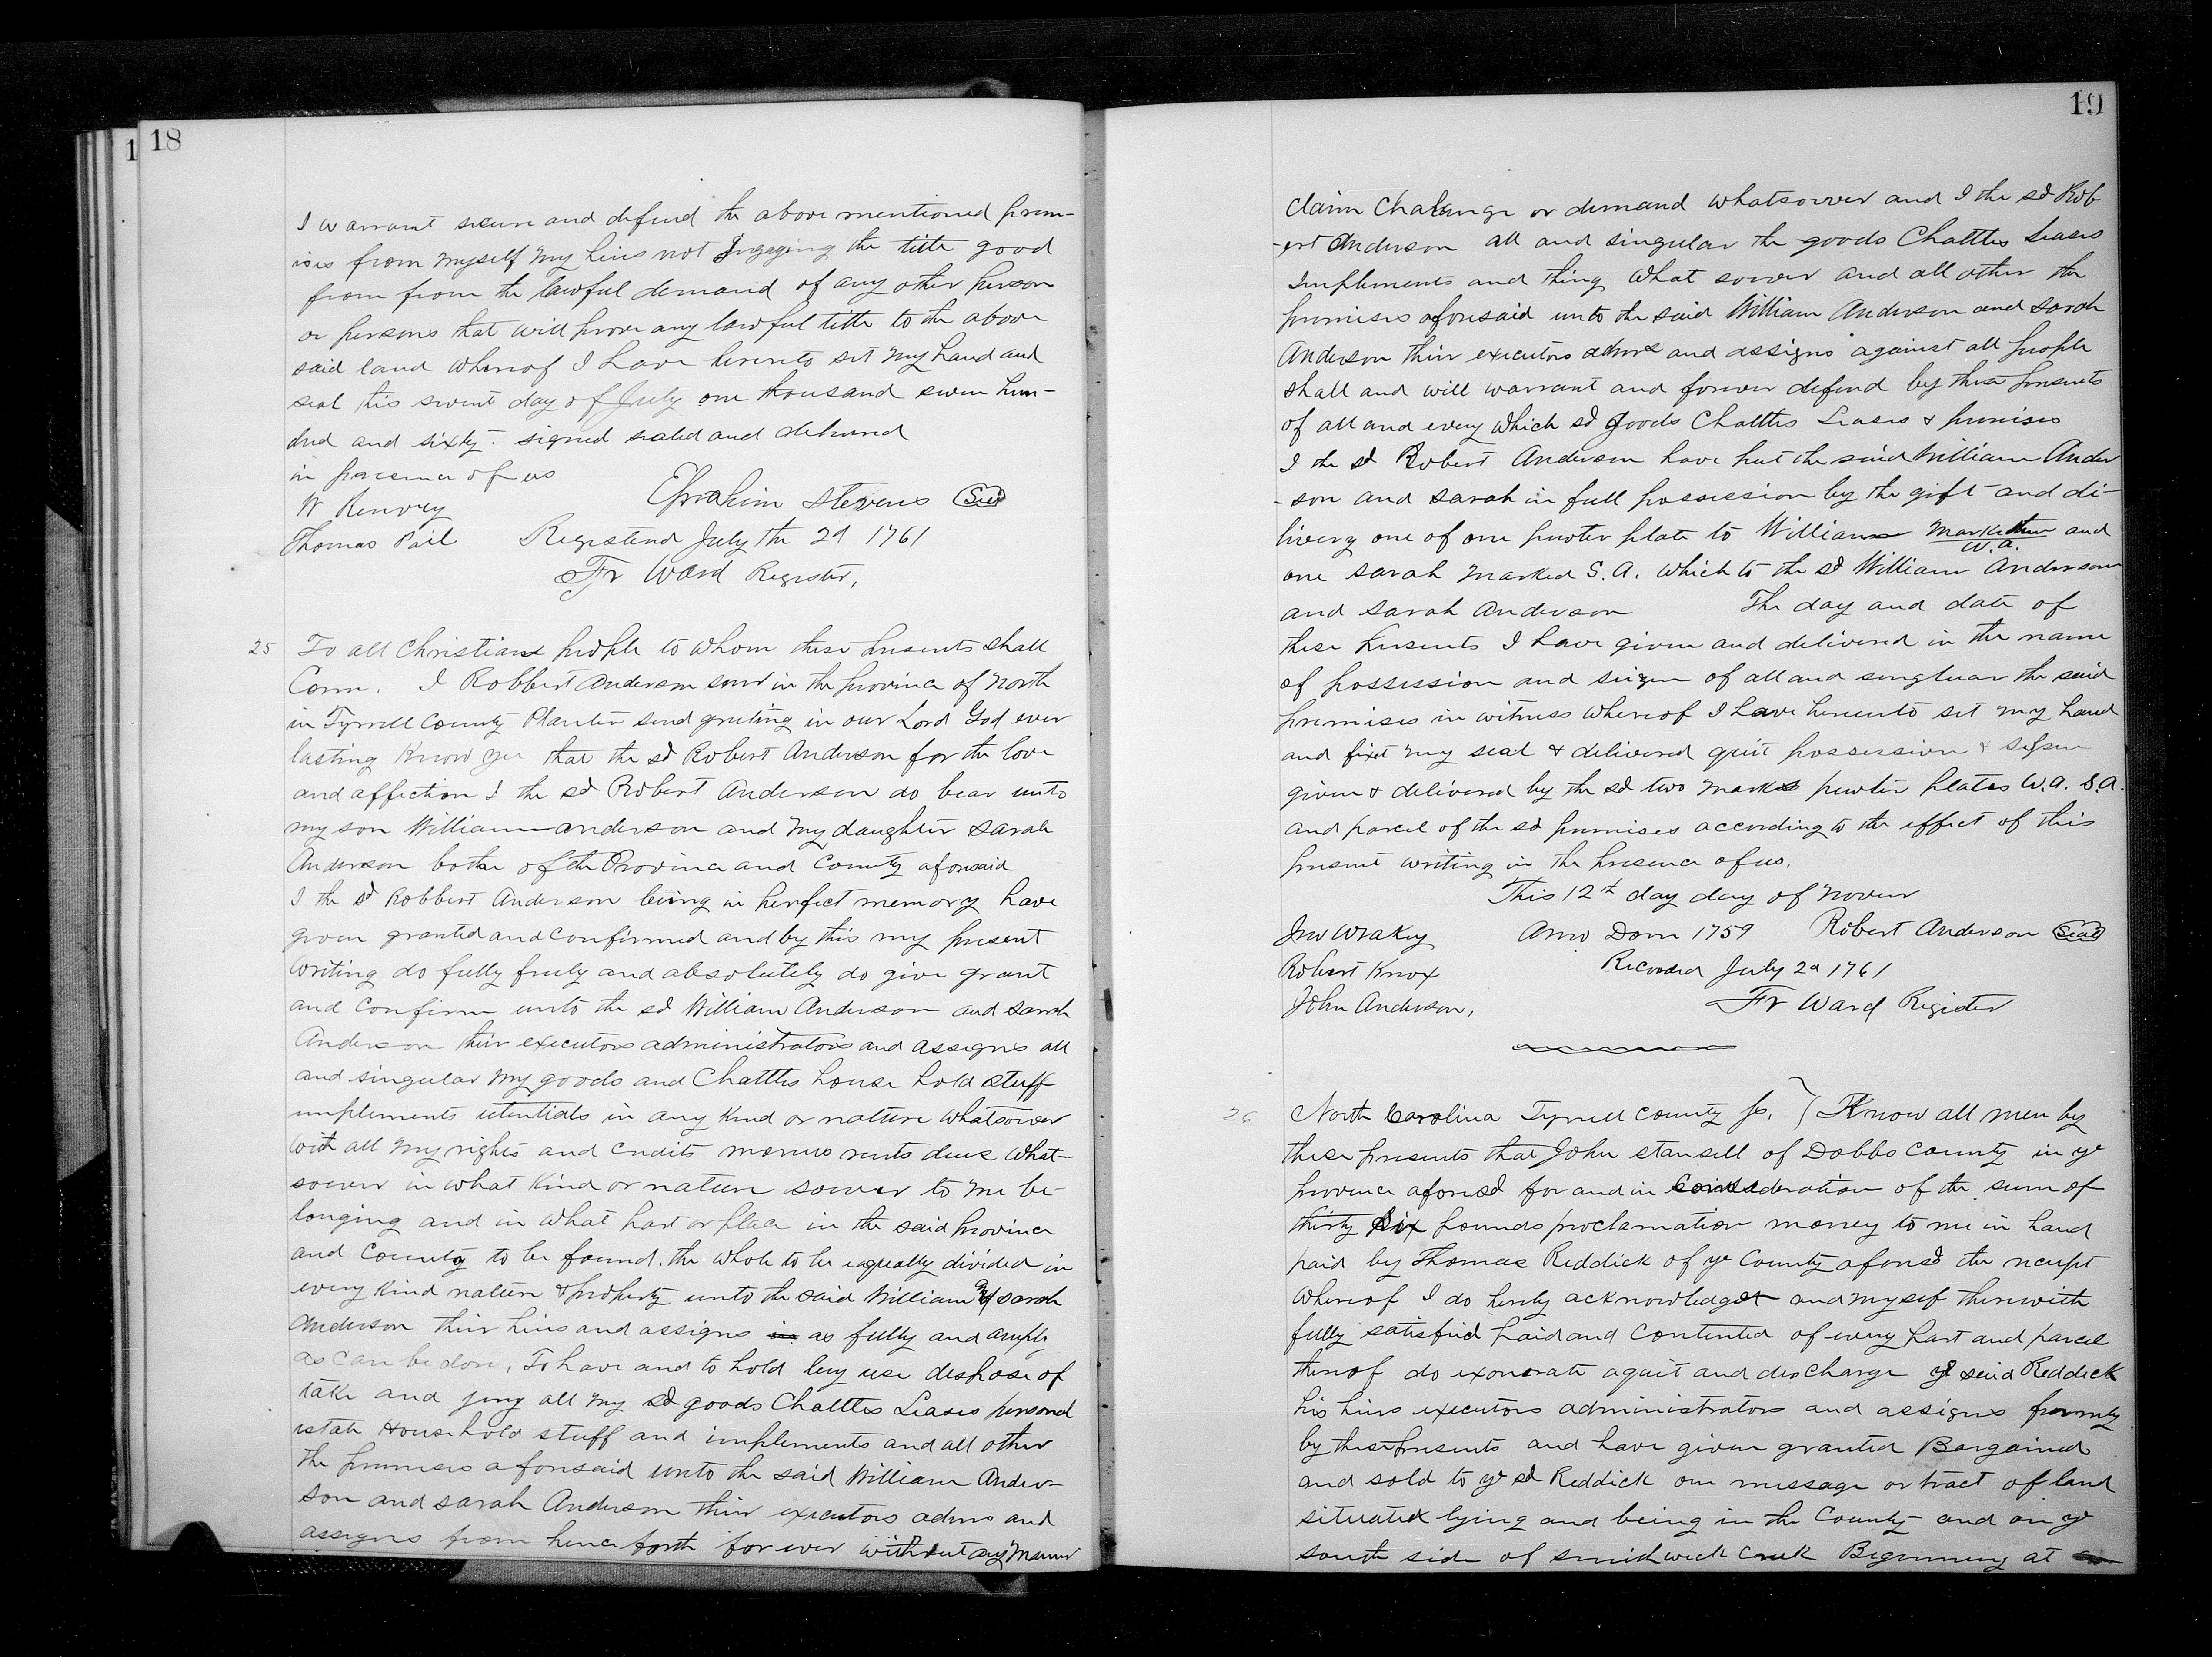 18
I warrant secure and defend the above mentioned prem-
ises from myself my heirs not Ingaging the title good
from from the lawful demand of any other person
or persons that will prove any lawful title to the above
said land whereof I have hereto set my hand and
seal this sevent day of July one thousand seven hun-
dred and sixty. signed sealed and delivered
in presence of us
Ephraim Stevens Seal
Thomas Pail Registered July the 29 1761
Fr Ward Register,
25 To all Christians people to whom these presents shall
Come. I Robbert Anderson senr in the province of North
in Tyrrell County Planter send greeting in our Lord God ever
lasting Know yee that the sd Robert Anderson for the love
and affection I the sd Robert Anderson do bear unto
my son William anderson and my daughter Sarah
Anderson bothe of the Province and County aforesaid
I the sd Robbert Anderson being in perfect memory have
given granted and confirmed and by this my present
writing do fully freely and absolutely do give grant
and confirm unto the sd William Anderson and Sarah
Anderson their executors administrators and assigns all
and singular my goods and Chattles house hold stuff
implements utentials in any kind or nature whatsoever
with all my rights and credits rents dews what-
soever in what kind or nature soever to me be-
longing and in what part or place in the said province
and County to be found. the whole to be eaqually divided in
every kind nature & property unto the said William and sarah
Anderson their heirs and assigns in as fully and ample
as can be done, To have and to hold use dispose of
take and all my sd goods Chattles Leases personal
estate Household stuff and implements and all other
the premises aforesaid unto the said William Ander-
son and sarah Anderson their executors adms and
assigns from hence forth for ever without any manner
19
Claim Chalenge or demand whatsoever and I the sd Rob
-ert Anderson all and singular the goods Chattles Leases
Implements and thing what soever and all other the
premises aforesaid unto the said William Anderson and sarah
Anderson their executors adms and assigns against all people
shall and will warrant and forever defend by these presents
of all and every which sd goods Chattles Leases & premises
I the sd Robert Anderson have put the said William Ander
-son and Sarah in full possession by the gift and di-
livery one of one pewter plate to William Marked them and
W.A.
one sarah marked S.A. which to the sd William Anderson
and Sarah Anderson The day and date of
these presents I have given and delivered in the name
of possession and seizen of all and singluar the said
premises in witness whereof I have hereunto set my hand
and fixt my seal & delivered quit possession &
given & delivered by the sd two marks pewter plates W.A. S.A.
and parcel of the sd premises according to the effect of this
present writing in the presence of us.
This 12th day day of Novem
Jno Wrakey Anno Dom 1759 Robert Anderson Seal
Robert Knox Recorded July 29 1761
John Anderson, Fr Ward Register
26 North Carolina Tyrrell County Js. } Know all men by
these presents that John stansell of Dobbs County in ye
province aforesd for and in Consideration of the sum of
thirty six pounds proclamation money to me in hand
paid by Thomas Reddick of ye County aforesd the receipt
whereof I do hereby acknowledge and myself therewith
fully satisfied paid and contented of every part and parcel
thereof do exonerate aquit and discharge ye said Reddick
his heirs executors administrators and assigns
by these presents and have given granted Bargained
and sold to ye sd Reddick one message or tract of land
situated lying and being in the County and on ye
south side of smithwick creek Beginning at